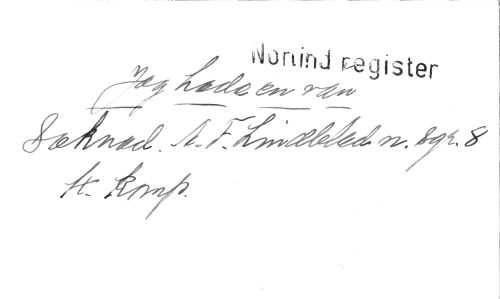 Norlind register
Jag hade en vän
Saknad. A. F. Lindblad n. sgr. 8
H. Komp.